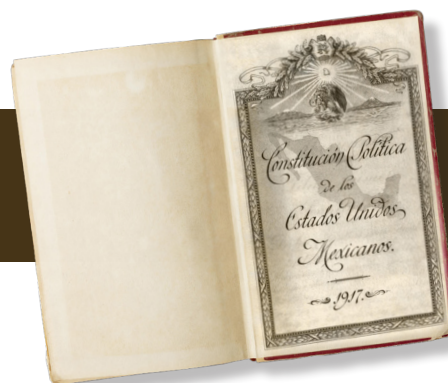 Constitución Política
de los
Estados Unidos
Mexicanos.
1917.